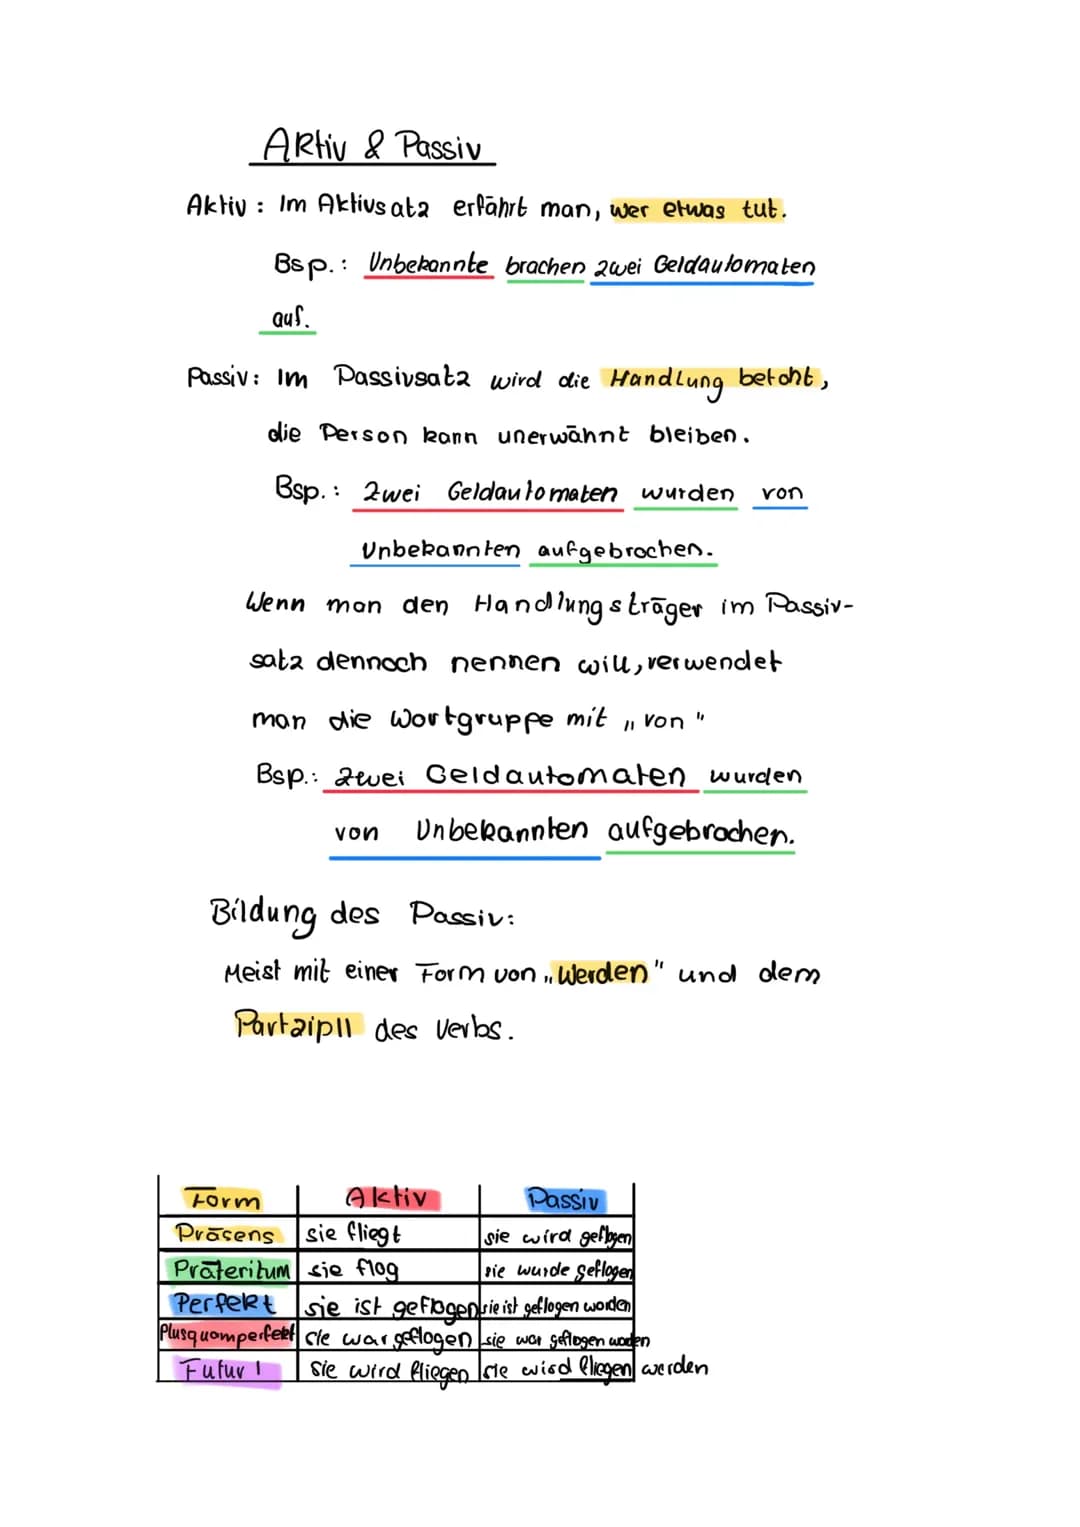 Aktiv & Passiv
Aktiv: Im Aktivsatz erfährt man, wer etwas tut.
Bsp.: Unbekannte brachen zwei Geldautomaten
auf.
Passiv: Im Passivsatz wird die Handlung betont,
die Person kann unerwähnt bleiben.
Bsp.: Zwei Geldautomaten wurden von
Unbekannten aufgebrochen.
Wenn man den Handlungsträger im Passiv-
satz dennoch nennen will, verwendet
man die Wortgruppe mit „von"
Bsp.: Zwei Geldautomaten wurden
von Unbekannten aufgebrochen.
Bildung des Passiv:
Meist mit einer Form von „Werden" und dem
PartzipII des Verbs.
Form Aktiv Passiv
Präsens sie fliegt sie wird geflogen
Präteritum sie flog sie wurde geflogen
Perfekt sie ist geflogen sie ist geflogen worden
Plusquamperfekt sie war geflogen sie war geflogen worden
Futur I Sie wird fliegen sie wird fliegen werden